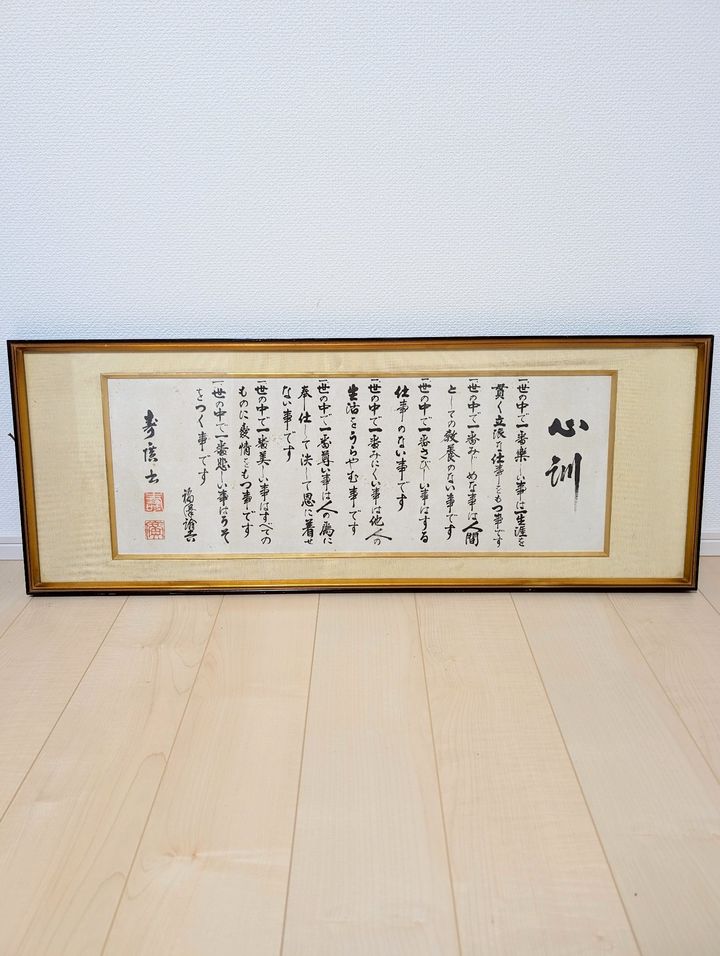 心訓
一世の中で一番楽しい事は一生涯を
貫く立派な仕事をもつ事です
一世の中で一番みじめな事は人間
としての教養のない事です
一世の中で一番さびしい事はする
仕事のない事です
一世の中で一番みにくい事は他人の
生活をうらやむ事です
一世の中で一番尊い事は人の為に
奉仕して決して恩に着せ
ない事です
一世の中で一番美しい事はすべての
ものに愛情をもつ事です
一世の中で一番悲しい事はうそ
をつく事です
福澤諭吉